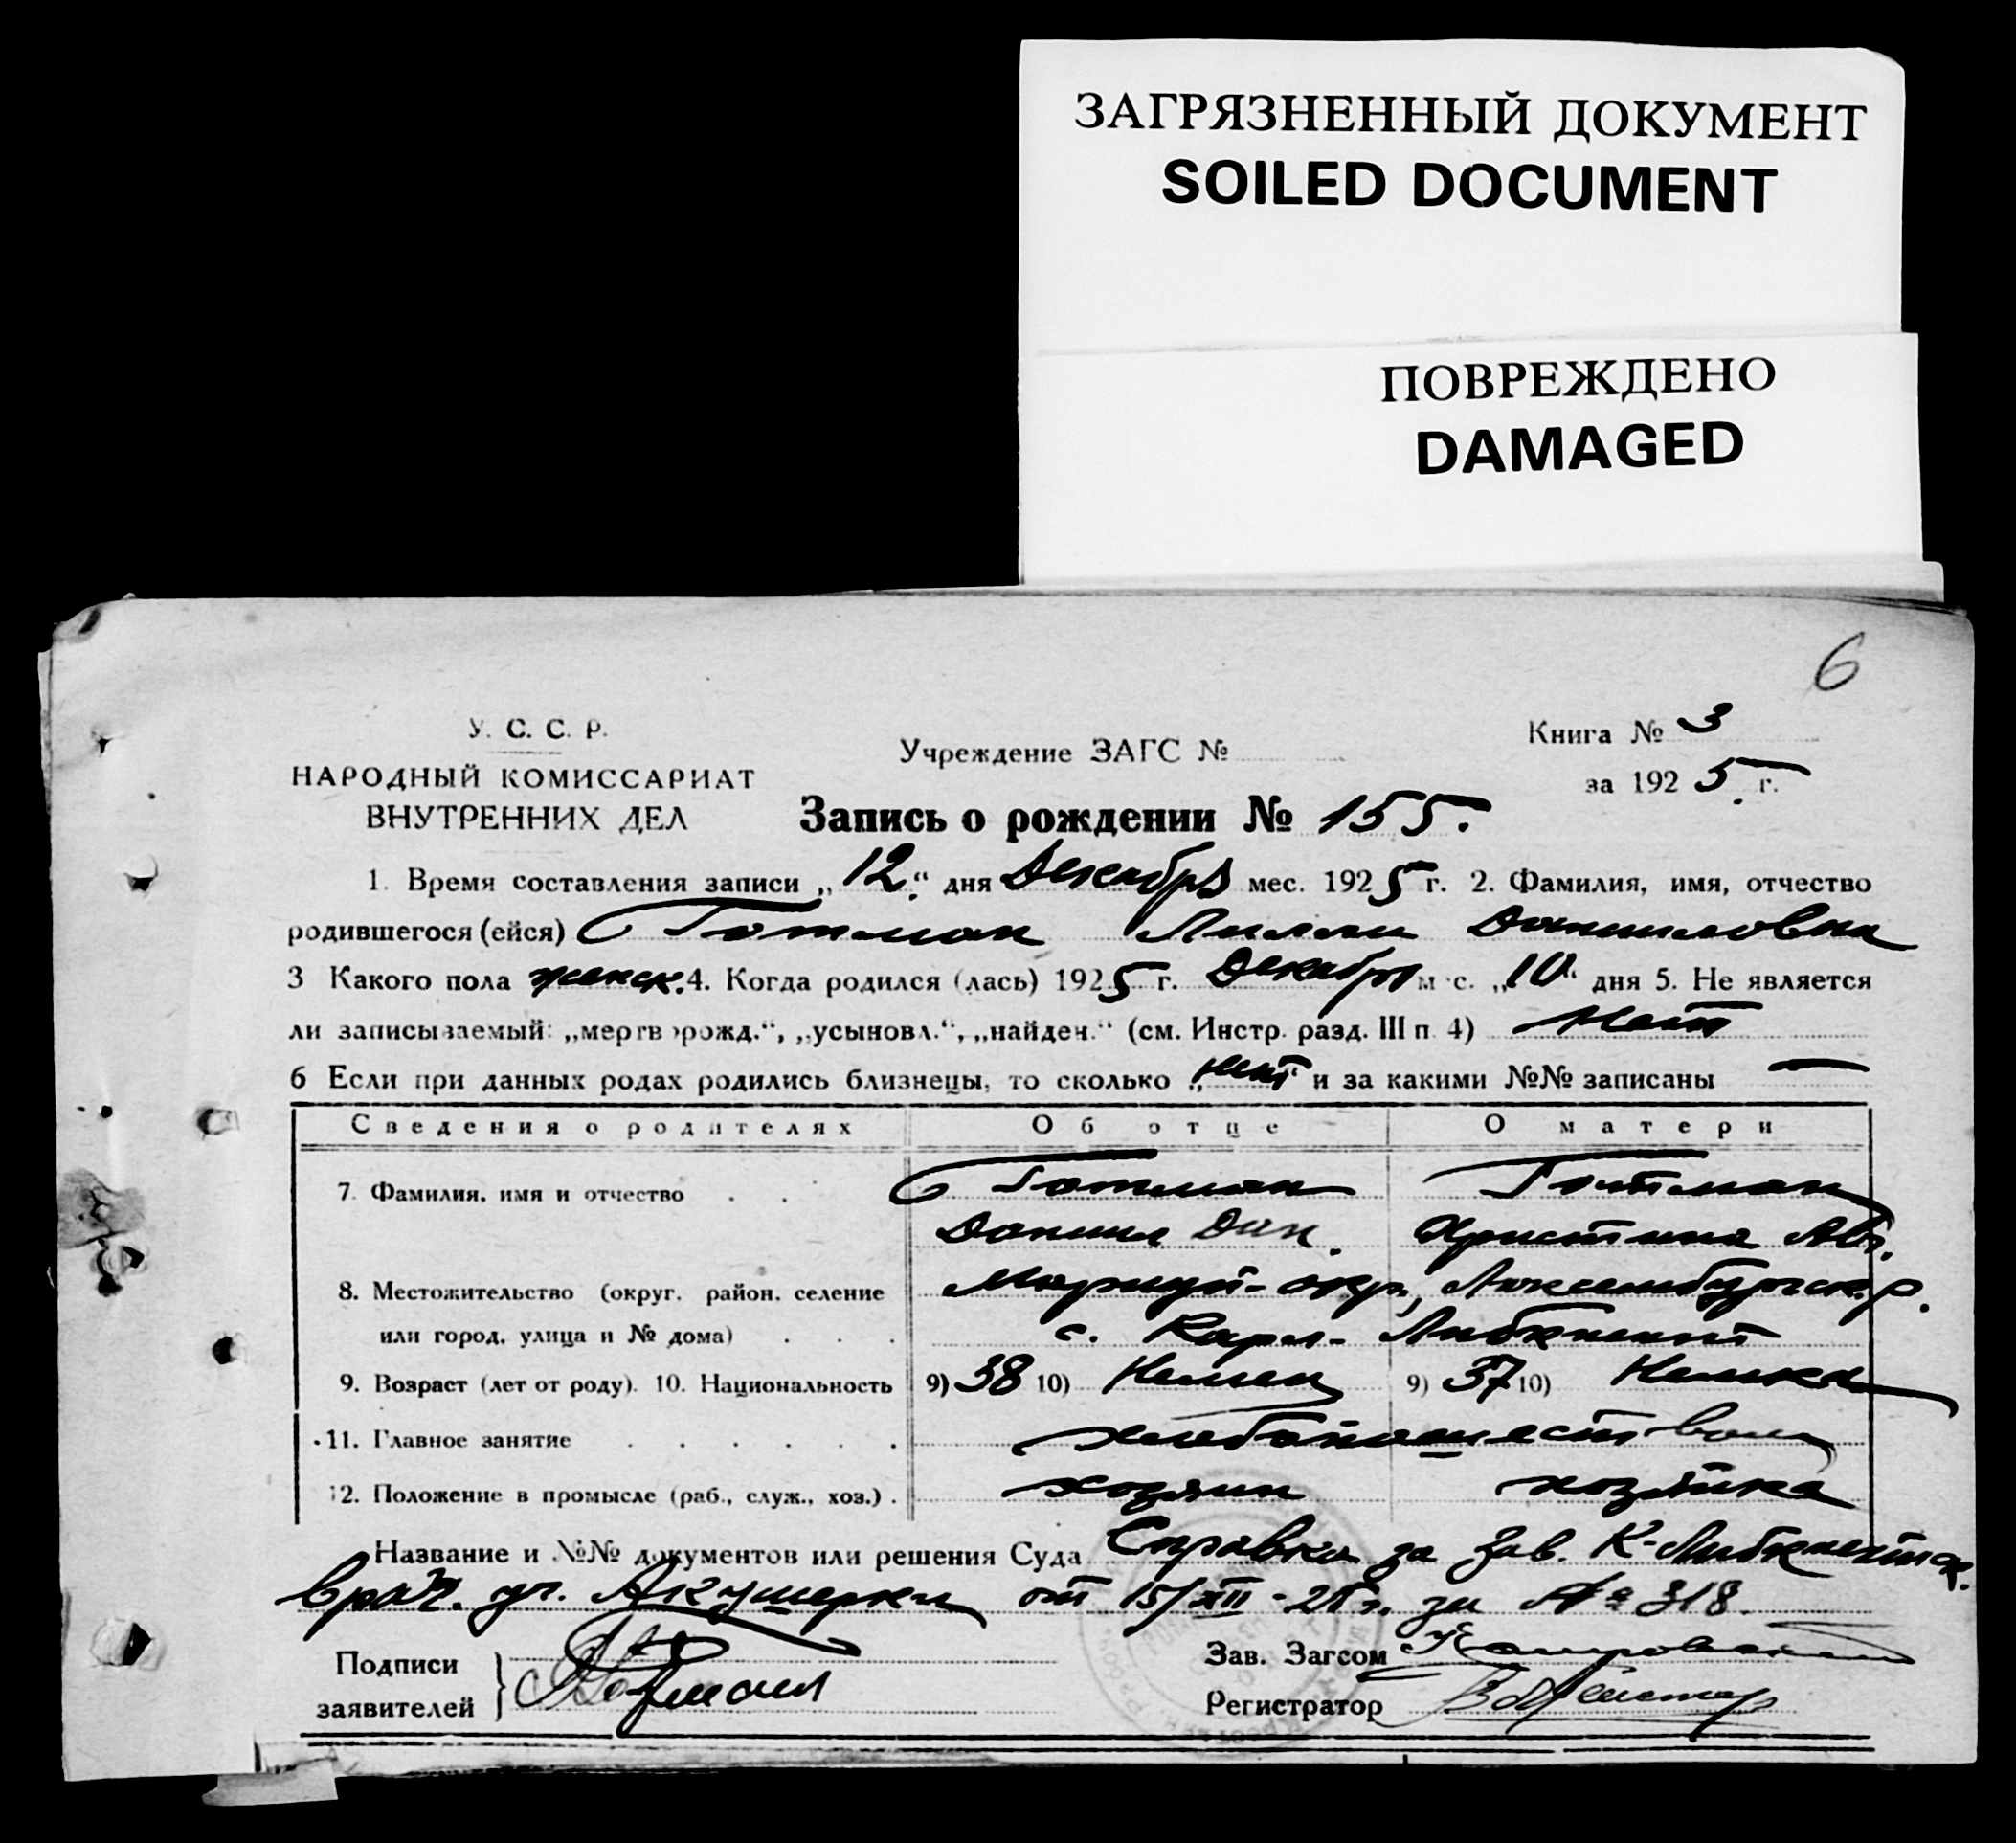 ЗАГРЯЗНЕННЫЙ ДОКУМЕНТ
SOILED DOCUMENT
ПОВРЕЖДЕНО
DAMAGED
6
У. С. С. Р.
НАРОДНЫЙ КОМИССАРИАТ
ВНУТРЕННИХ ДЕЛ
Учреждение ЗАГС №
Книга № 3
за 1925 г.
Запись о рождении № 155.
1. Время составления записи „12.“ дня Декабря мес. 1925 г. 2. Фамилия, имя, отчество
родившегося (ейся) Готман Лилли Даниловна
3 Какого пола женск. 4. Когда родился (лась) 1925 г. Декабря м с. „10“ дня 5. Не является
ли записываемый: „мертворожд.“, „усыновл.“, „найден.“ (см. Инстр. разд. III п. 4) Нет
6 Если при данных родах родились близнецы, то сколько „нет“ и за какими №№ записаны —
Сведения о родителях Об отце О матери
7. Фамилия, имя и отчество Готман Готман
Данил Дан. Христина
8. Местожительство (округ, район, селение Мариуп- окр, Люксембургск. р.
или город, улица и № дома) с. Карл- Либкнехт
9. Возраст (лет от роду). 10. Национальность 9) 38 10) Немец 9) 37 10) Немка
11. Главное занятие хлебопашество
12. Положение в промысле (раб., служ., хоз.) хозяин хозяйка
Название и №№ документов или решения Суда Справка за Зав. К-Либкнехтск.
врач. уч. Акушерки от 15/XII-25г. за № 318.
Подписи
заявителей
Зав. Загсом
Регистратор